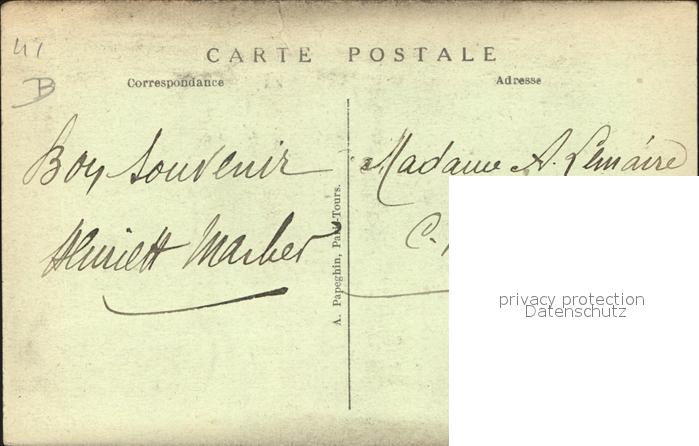 41
B
CARTE POSTALE
Correspondance
Adresse
Bon Souvenir
Madame A. Lemaire
C.
A. Papeghin, Paris-Tours.
privacy protection
Datenschutz